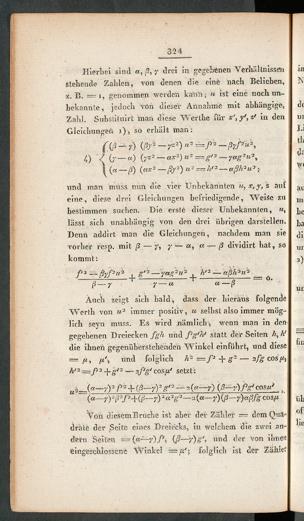 324
Hierbei sind α, β, γ drei in gegebenen Verhältnissen
stehende Zahlen, von denen die eine nach Belieben,
z. B. = 1, genommen werden kann; u ist eine noch un-
bekannte, jedoch von dieser Annahme mit abhängige,
Zahl. Substituirt man diese Werthe für x', y', z' in den
Gleichungen 1), so erhält man:
(β — γ) (βy² — γz²) u² = f'² — βγf²u²,
4) (γ — α) (γz² — αx²) u² = g'² — γαg²u²,
(α — β) (αx² — βy²) u² = h'² — αβh²u²;
und man muss nun die vier Unbekannten u, x, y, z auf
eine, diese drei Gleichungen befriedigende, Weise zu
bestimmen suchen. Die erste dieser Unbekannten, u,
lässt sich unabhängig von den drei übrigen darstellen.
Denn addirt man die Gleichungen, nachdem man sie
vorher resp. mit β — γ, γ — α, α — β dividirt hat, so
kommt:
f'² — βγf²u²/β — γ + g'² — γαg²u²/γ — α + h'² — αβh²u²/α — β = 0.
Auch zeigt sich bald, dass der hieraus folgende
Werth von u² immer positiv, u selbst also immer mög-
lich seyn muss. Es wird nämlich, wenn man in den
gegebenen Dreiecken fgh und f'g'h' statt der Seiten h, h'
die ihnen gegenüberstehenden Winkel einführt, und diese
= μ, μ', und folglich h² = f² + g² — 2fg cos μ,
h'² = f'² + g'² — 2f'g' cos μ' setzt:
u² = (α—γ)² f'² + (β—γ)² g'² — 2(α—γ) (β—γ) f'g' cos μ'/(α—γ)²β²f² + (β—γ)²α²g² — 2(α—γ)(β—γ)αβfg cos μ.
Von diesem Bruche ist aber der Zähler = dem Qua-
drate der Seite eines Dreiecks, in welchem die zwei an-
dern Seiten = (α—γ) f', (β—γ) g', und der von ihnen
eingeschlossene Winkel = μ'; folglich ist der Zähler